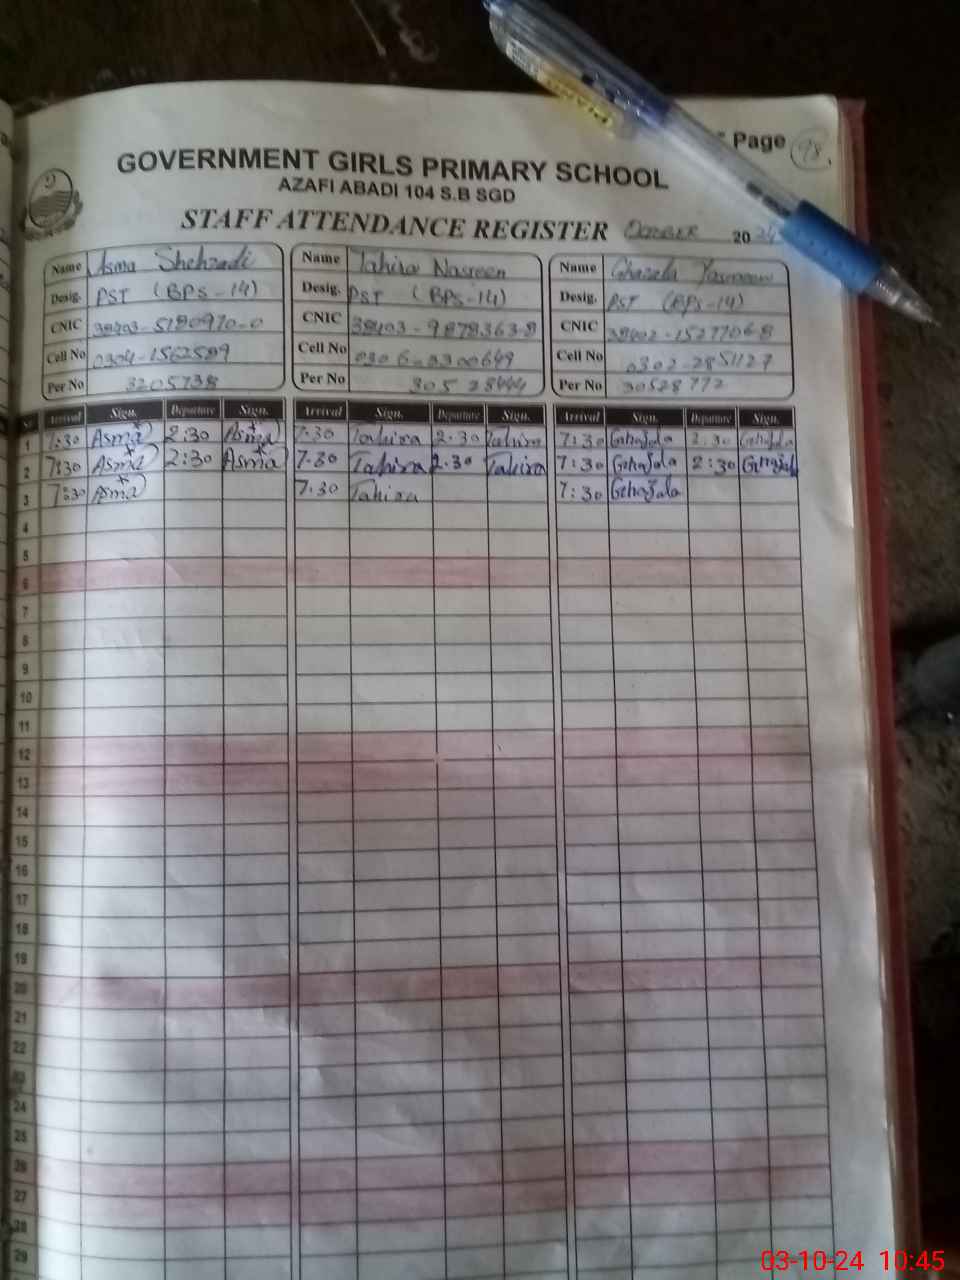 Page 98.
GOVERNMENT GIRLS PRIMARY SCHOOL
AZAFI ABADI 104 S.B SGD
STAFF ATTENDANCE REGISTER OCTOBER 2024
Name Asma Shehzadi Name Tahira Nasreen Name Ghazala Yasmeen
Desig. PST (BPS-14) Desig. PST (BPS-14) Desig. PST (BPS-14)
CNIC 38403-5180970-0 CNIC 38403-9878363-8 CNIC 38402-1527706-8
Cell No 0304-1562589 Cell No 0306-3300649 Cell No 0302-2851127
Per No 3205738 Per No 30528444 Per No 30528772
Arrival Sign. Departure Sign. Arrival Sign. Departure Sign. Arrival Sign. Departure Sign.
1 7:30 Asma 2:30 Asma 7.30 Tahira 2.30 Tahira 7:30 Gehazala 2:30 Gehazala
2 7:30 Asma 2:30 Asma 7.30 Tahira 2.30 Tahira 7:30 Gehazala 2:30 Gehazala
3 7:30 Asma 7.30 Tahira 7:30 Gehazala
4
5
6
7
8
9
10
11
12
13
14
15
16
17
18
19
20
21
22
23
24
25
26
27
28
29
03-10-24 10:45